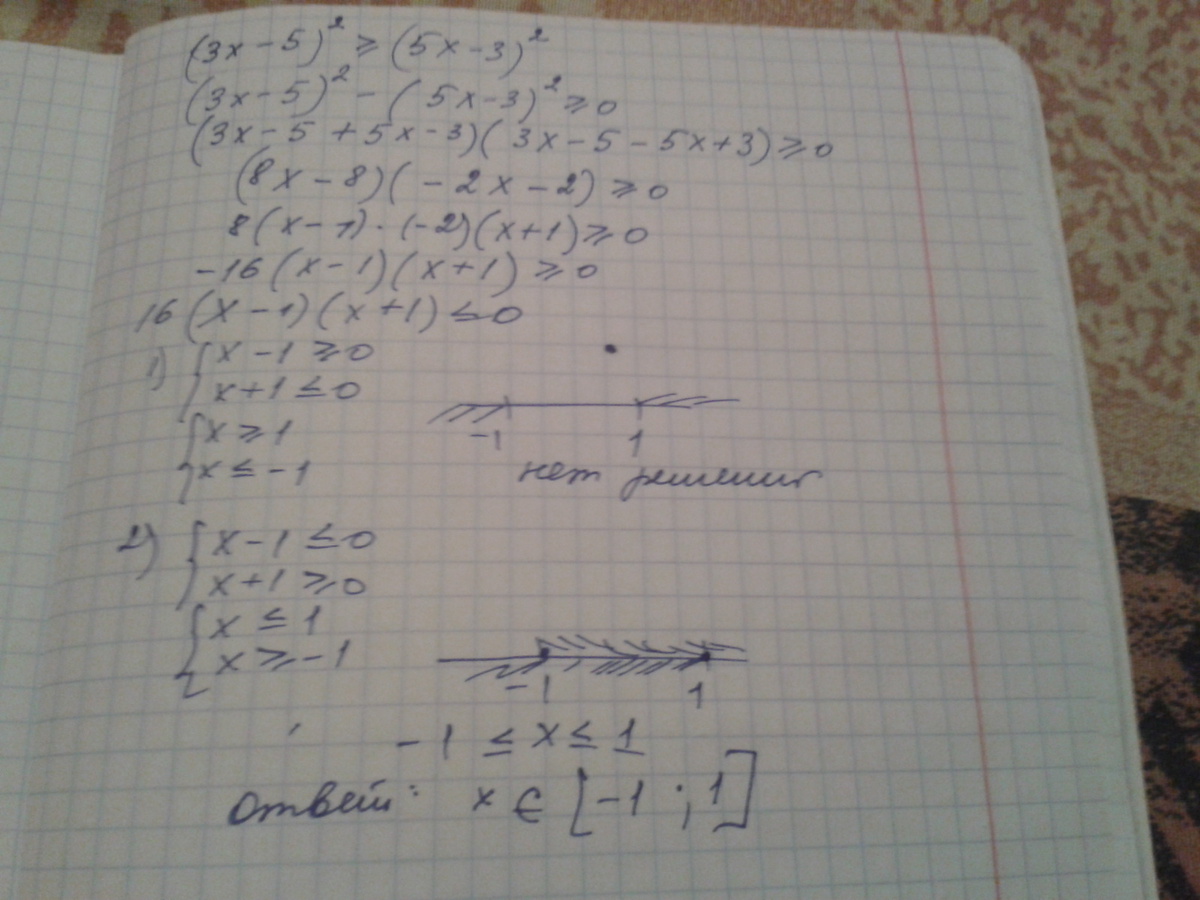 (3x-5)² ≥ (5x-3)²
(3x-5)² - (5x-3)² ≥ 0
(3x-5+5x-3)(3x-5-5x+3) ≥ 0
(8x-8)(-2x-2) ≥ 0
8(x-1)·(-2)(x+1) ≥ 0
-16(x-1)(x+1) ≥ 0
16(x-1)(x+1) ≤ 0
1) { x-1 ≥ 0
x+1 ≤ 0
{ x ≥ 1
x ≤ -1
-1 1
нет решения
2) { x-1 ≤ 0
x+1 ≥ 0
{ x ≤ 1
x ≥ -1
-1 1
-1 ≤ x ≤ 1
ответ: x ∈ [-1 ; 1]